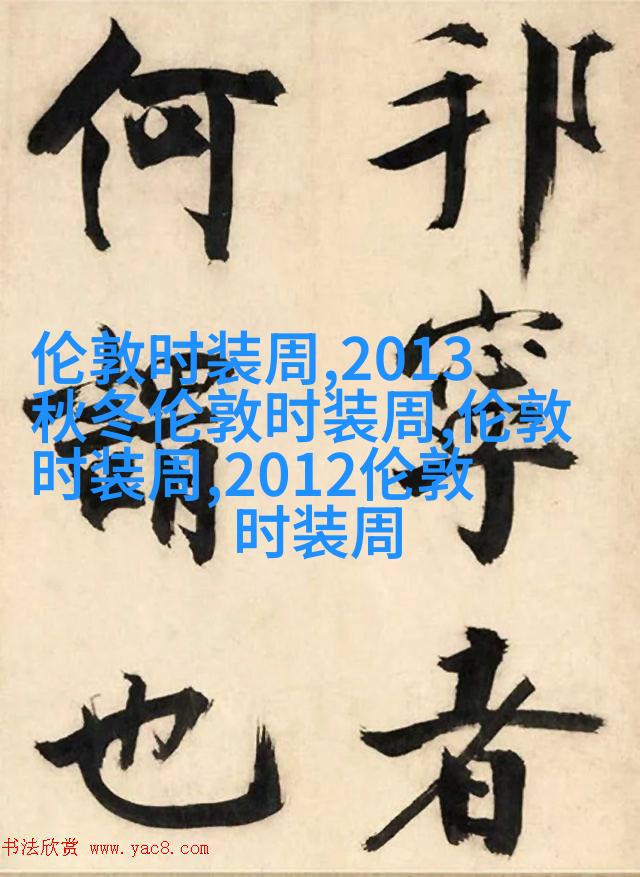 邦寧者
何謂也
伦敦时装周,2013
秋冬伦敦时装周,伦敦
时装周,2012伦敦
时装周
书法欣赏 www.yac8.com